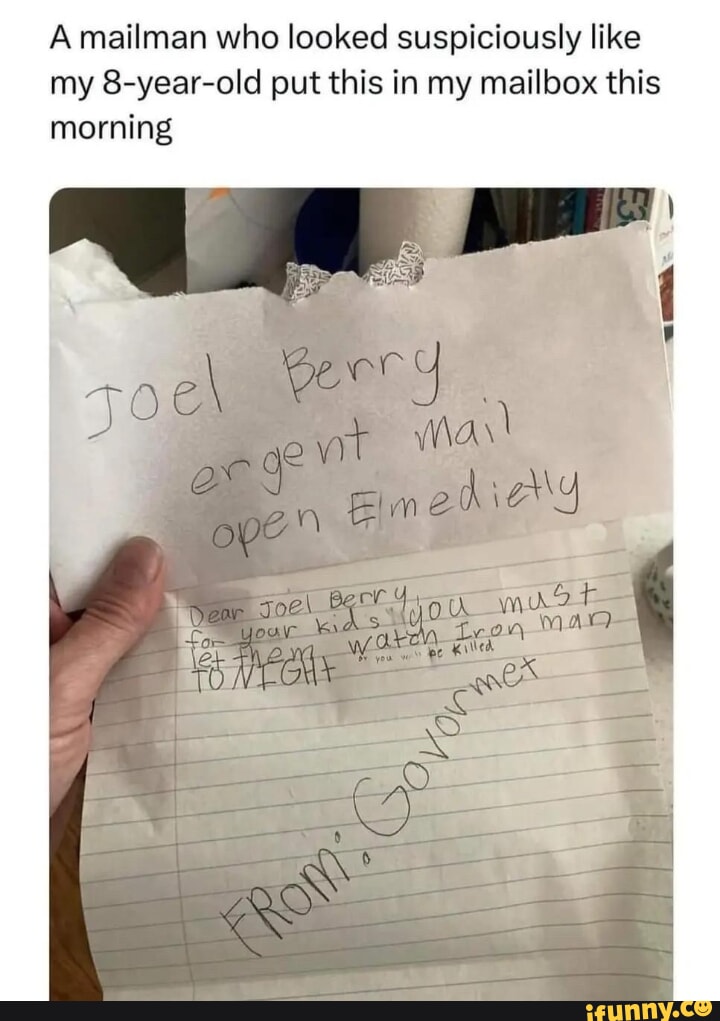 A mailman who looked suspiciously like
my 8-year-old put this in my mailbox this
morning
Joel Berry
ergent Mail
open Emedietly
Dear Joel Berry
for your kids you must
let them watch Iron man
TONIGHT or you will be killed
FROM: Govormet
ifunny.co